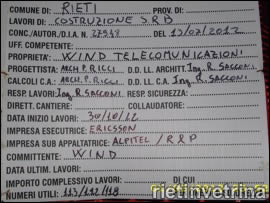 COMUNE DI: RIETI PROV.
LAVORI DI: COSTRUZIONE S.R.B
CONC./AUTOR./D.I.A. N. 27948 DEL 13/07/2012
UFF. COMPETENTE:
PROPRIETA': WIND TELECOMUNICAZIONI
PROGETTISTA: ARCH P. RICCI D.D. LL. ARCHITT. Ing. R. SACCONI
CALCOLI C.A. ARCH P. RICCI D.D. LL. C.A. Ing R. SACCONI
RESP. LAVORI Ing R. SACCONI RESP. SICUREZZA:
DIRETT. CANTIERE: COLLAUDATORE:
DATA INIZIO LAVORI: 30/10/12
IMPRESA ESECUTRICE: ERICSSON
IMPRESA SUB APPALTATRICE: ALPITEL / R&P
COMMITTENTE: WIND
DATA ULTIM. LAVORI:
IMPORTO COMPLESSIVO LAVORI: DI CUI
NUMERI UTILI: 113/112/118
rietinvetrina